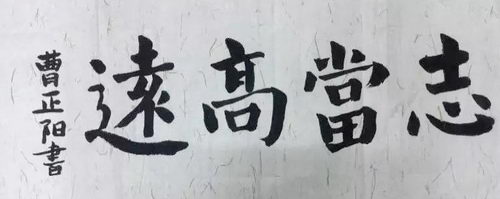 志當高遠
曹正阳書